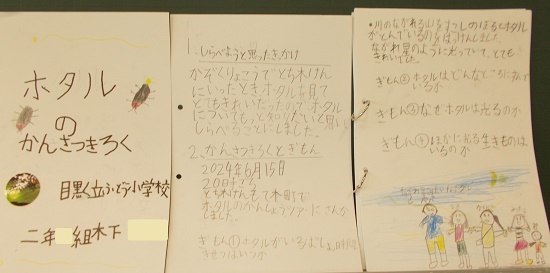 ホタル
の
かんさつきろく
目黒区立ふどう小学校
二年 組木下
1.しらべようと思ったきっかけ
かぞくりょこうでとち木けん
にいったときホタルを見て
とてもきれいだったのでホタル
についてもっと知りたいと思い
しらべることにしました。
2.かんさつきろくとぎもん
2024年6月15日
20時ごろ
とちぎけん
ホタルのかんしょうツアーにさんか
しました。
ぎもん①ホタルがいるばしょ、時間、
きせつはいつか
・川のながれる山を すこしのぼるとホタル
がとんでいるのをはっけんしました。
ながれ星のように光っていて、とても
きれいでした。
ぎもん②ホタルはどんなところにすんで
いるか
ぎもん③なぜホタルは光るのか
ぎもん④ほかに光る生きものは
いるのか